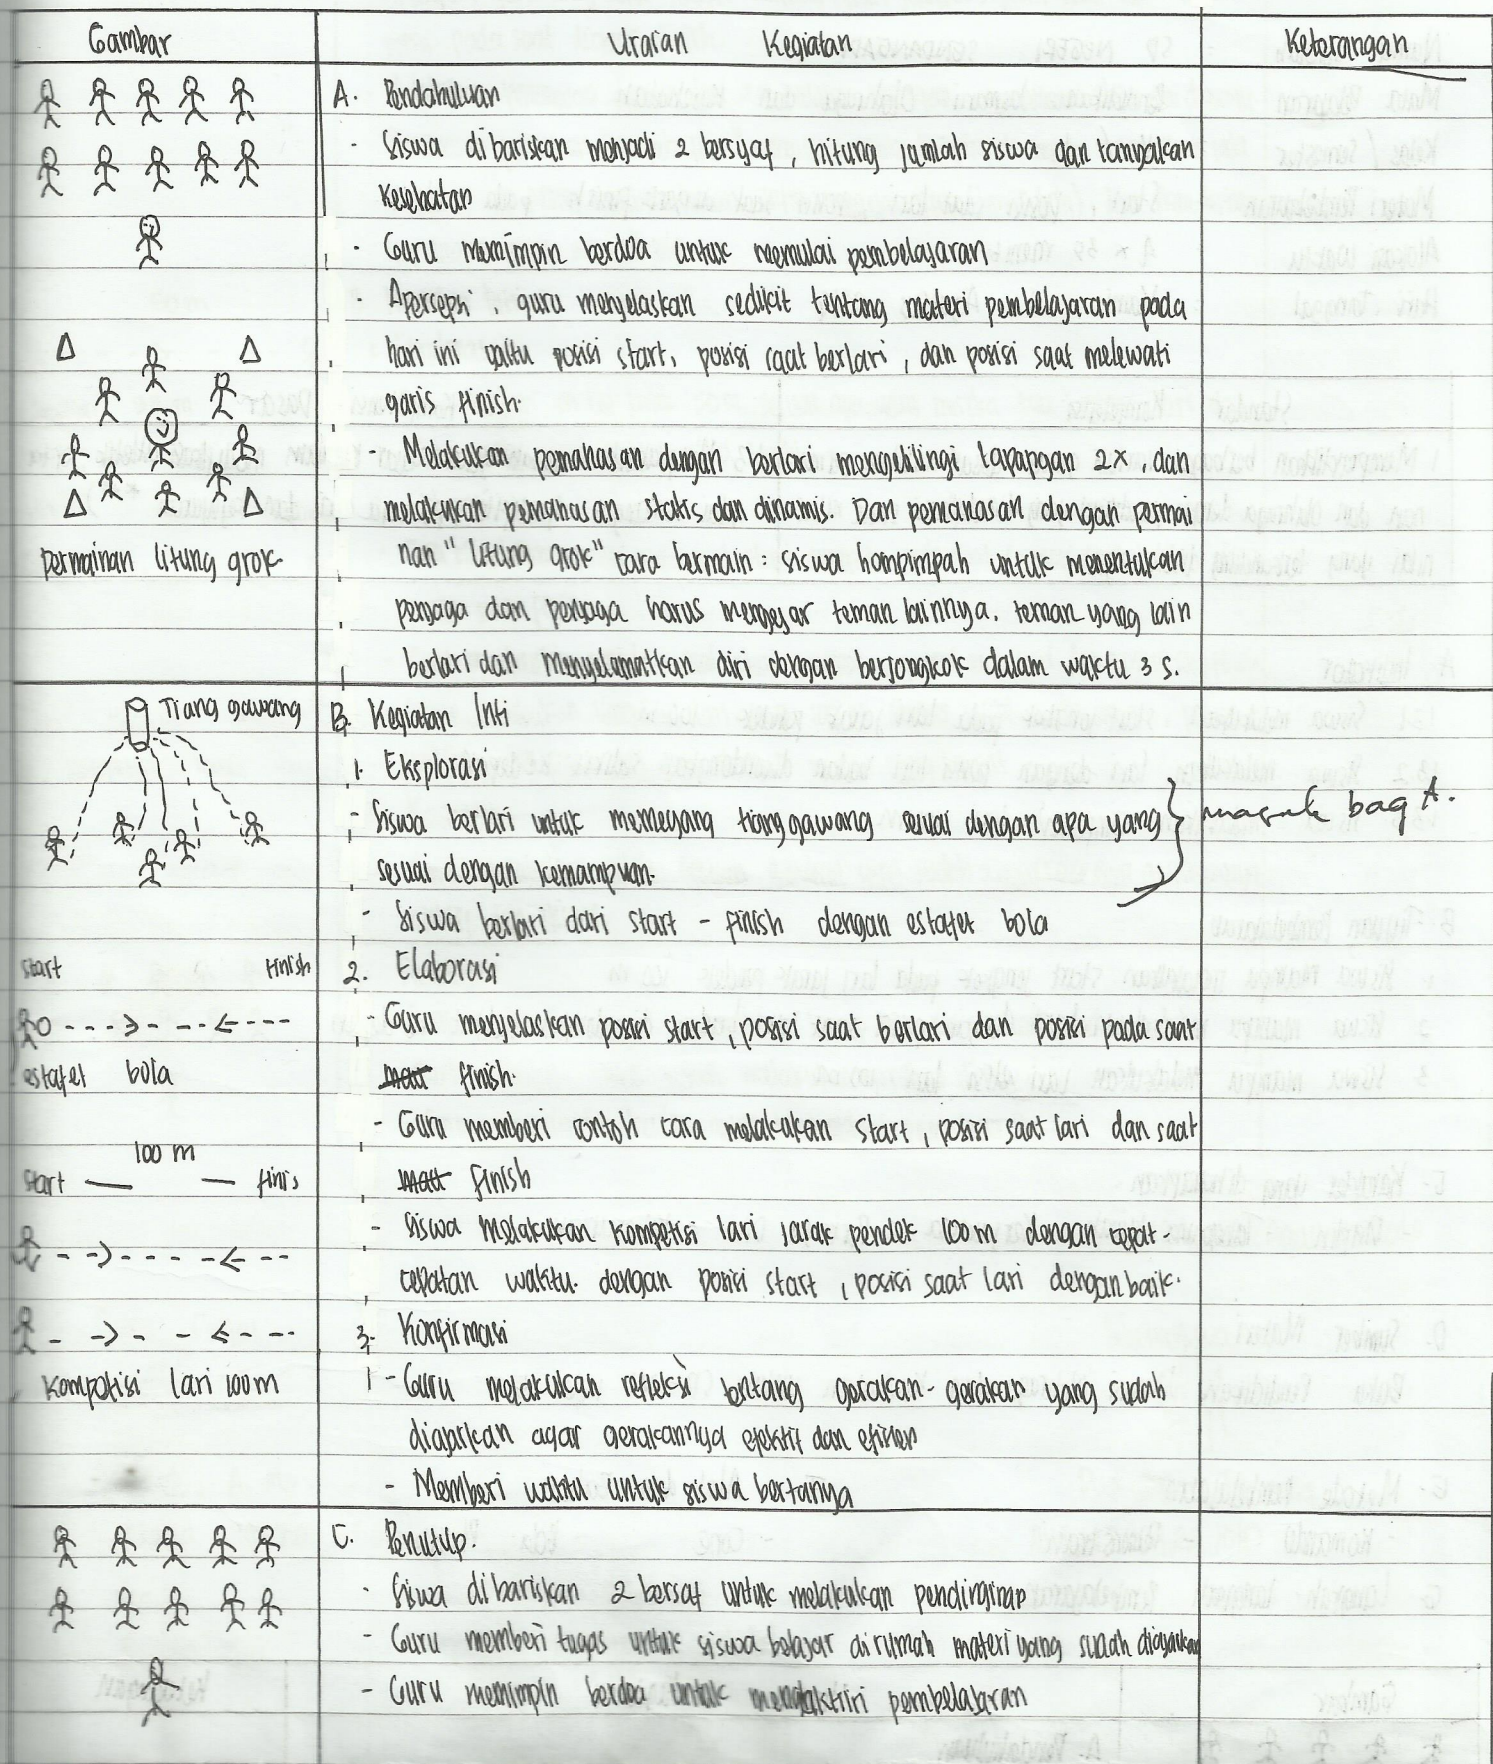 Gambar
Uraian Kegiatan
Keterangan
A. Pendahuluan
- Siswa dibariskan menjadi 2 bersyaf, hitung jumlah siswa dan tanyakan
kesehatan
- Guru memimpin berdoa untuk memulai pembelajaran
- Apersepsi, guru menjelaskan sedikit tentang materi pembelajaran pada
hari ini yaitu posisi start, posisi saat berlari, dan posisi saat melewati
garis finish.
- Melakukan pemanasan dengan berlari mengelilingi lapangan 2x, dan
melakukan pemanasan statis dan dinamis. Dan pemanasan dengan permai
nan "litung grok" cara bermain : siswa hompimpah untuk menentukan
penjaga dan penjaga harus mengejar teman lainnya. teman yang lain
berlari dan menyelamatkan diri dengan berjongkok dalam waktu 3 s.
permainan litung grok
Tiang gawang
B. Kegiatan Inti
1. Eksplorasi
- Siswa berlari untuk memegang tiang gawang sesuai dengan apa yang
sesuai dengan kemampuan.
masuk bag A.
- Siswa berlari dari start - finish dengan estafet bola
start finish
estafet bola
2. Elaborasi
- Guru menjelaskan posisi start, posisi saat berlari dan posisi pada saat
finish.
- Guru memberi contoh cara melakukan start, posisi saat lari dan saat
finish
100 m
start finis
- Siswa melakukan kompetisi lari jarak pendek 100m dengan cepat-
cepatan waktu. dengan posisi start, posisi saat lari dengan baik.
3. Konfirmasi
kompetisi lari 100m
- Guru melakukan refleksi tentang gerakan-gerakan yang sudah
diajarkan agar gerakannya efektif dan efisien
- Memberi waktu untuk siswa bertanya
C. Penutup.
- Siswa dibariskan 2 bersaf untuk melakukan pendinginan
- Guru memberi tugas untuk siswa belajar dirumah materi yang sudah diajarkan
- Guru memimpin berdoa untuk mengakhiri pembelajaran